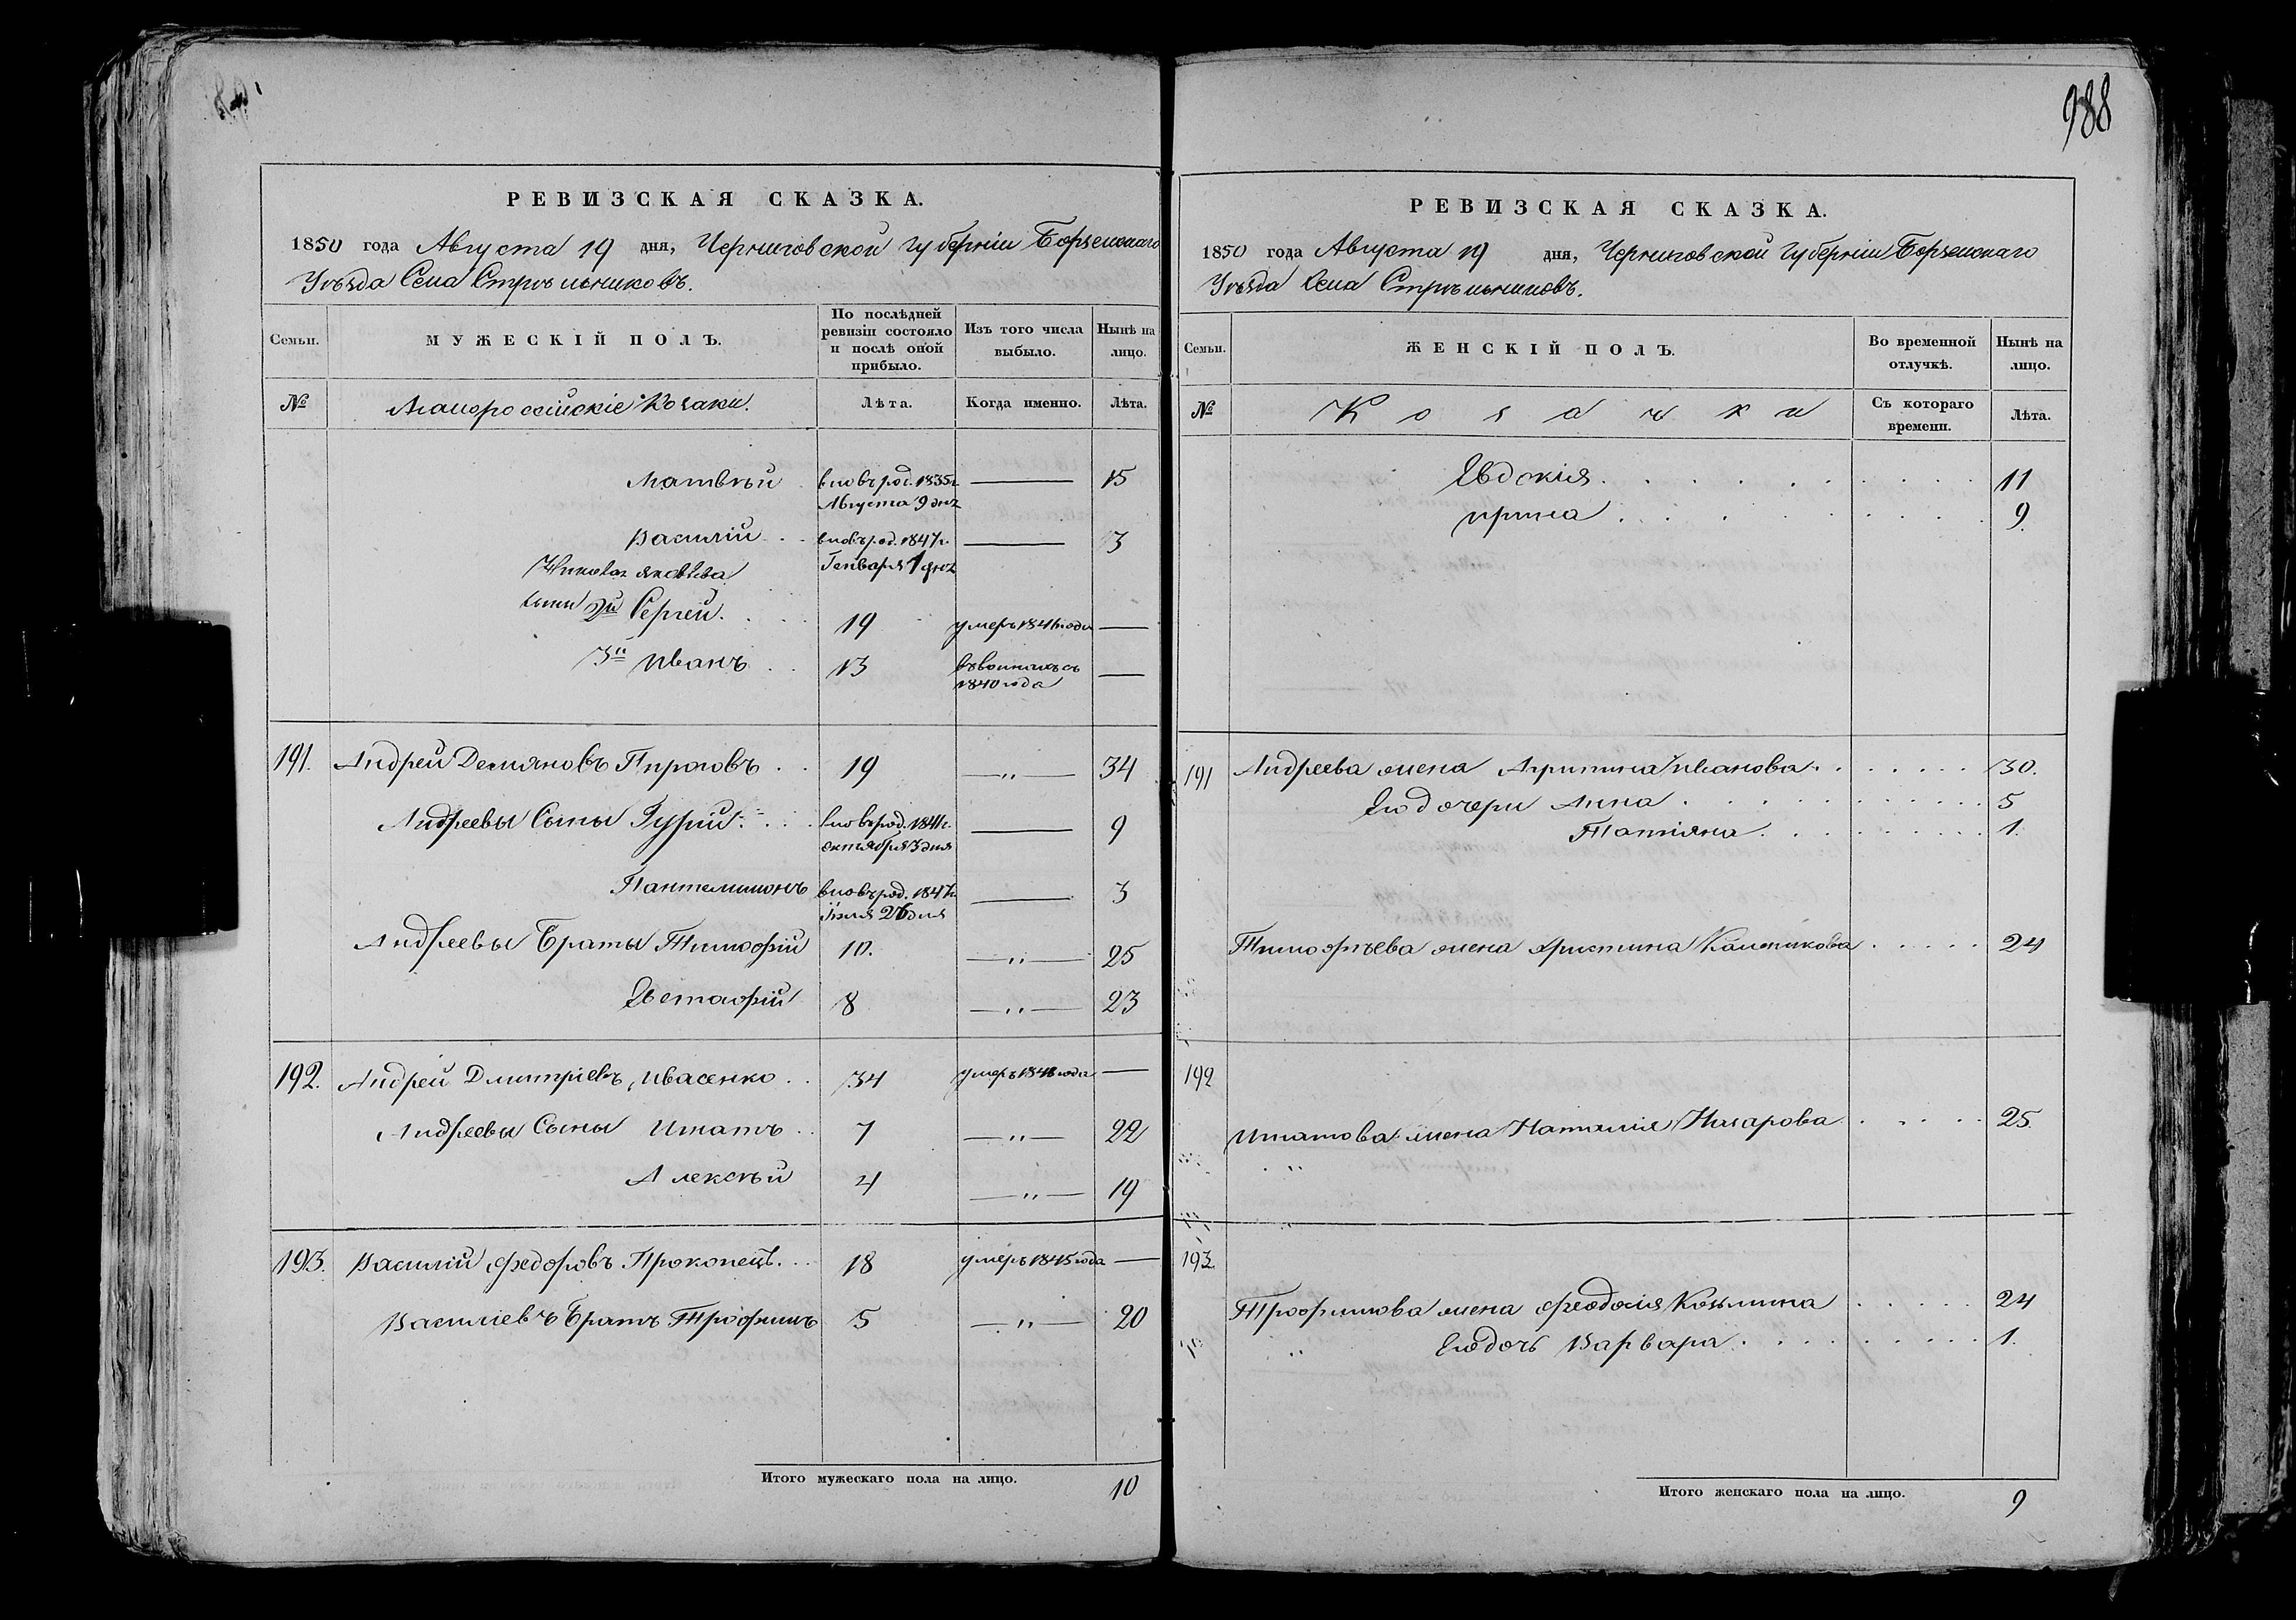 РЕВИЗСКАЯ СКАЗКА.
1850 года Августа 19 дня, Черниговской губерніи Борзенскаго
Уѣзда Села Стрѣльниковъ.
Семьи. МУЖЕСКІЙ ПОЛЪ. По послѣдней ревизіи состояло и послѣ оной прибыло. Изъ того числа выбыло. Нынѣ на лицо.
№ Малоросійскіе Козаки. Лѣта. Когда именно. Лѣта.
Матвѣй вновь род. 1835г. 15
Августа 9 дня
Василій вновь род. 1847г. 3
Генваря 1 дня
Яковлева
сыны 2й Сергей 19 умеръ 184 года
3й Иванъ 13 съ
1840 года
191. Андрей Демяновъ Пироговъ 19 „ 34
Андреевы Сыны Гурій вновь род. 1841г. 9
октября 3 дня
Пантелимонъ вновь род. 1847г. 3
Іюля 26 дня
Андреевы Браты Тимофій 10. „ 25
Евстафій 8 „ 23
192. Андрей Дмитріевъ Ивасенко 34 умеръ 1848 года
Андреевы Сыны Игнатъ 7 „ 22
Алексѣй 4 „ 19
193. Василій Федоровъ Прокопецъ 18 умеръ 1845 года
Василіевъ Братъ Трофимъ 5 „ 20
Итого мужескаго пола на лицо. 10
988
РЕВИЗСКАЯ СКАЗКА.
1850 года Августа 19 дня, Черниговской Губерніи Борзенскаго
Уѣзда Села Стрѣльниковъ.
Семьи. ЖЕНСКІЙ ПОЛЪ. Во временной отлучкѣ. Нынѣ на лицо.
№ Козачки Съ котораго времени. Лѣта.
Евдокія 11
Ирина 9
191 Андреева жена Агрипина Иванова 30.
Его дочери Анна 5
Татіяна 1.
Тимофѣева жена Христина Калиникова 24
192
Игнатова жена Наталія Назарова 25.
„
193.
Трофимова жена Феодосія Козьмина 24
„ Его дочь Варвара 1.
Итого женскаго пола на лицо. 9